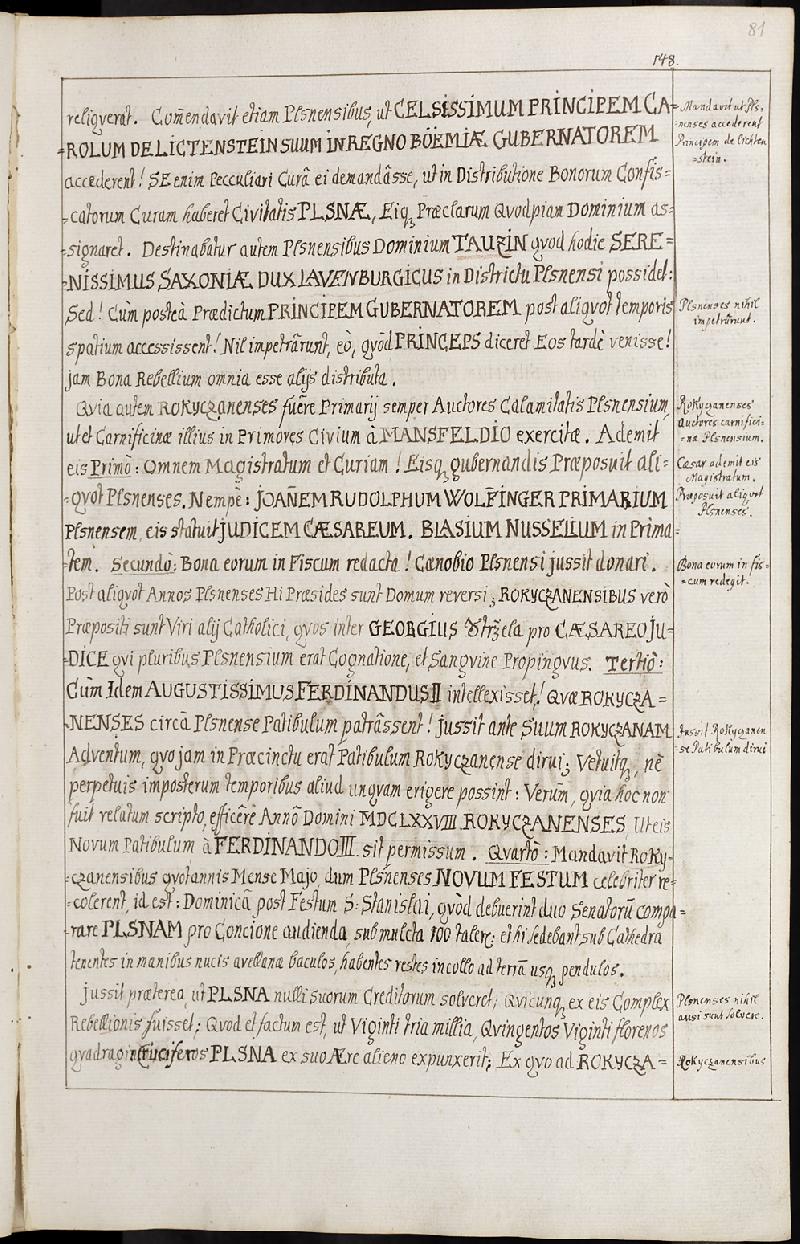 81
148.
reliqverat. Com̃endavit etiam Plsnensibus, ut CELSISSIMUM PRINCIPEM CA=
=ROLUM DE LICTENSTEIN SUUM IN REGNO BÖEMIÆ GUBERNATOREM
accederent! SE enim Pecculiari Curâ ei demandâsse, ut in Distributione Bonorum Confis=
=catorum Curam haberet Civitatis PLSNÆ, Eiq; Præclarum Qvodpiam Dominium as=
=signaret. Destinabatur autem Plsnensibus Dominium TAUZIN qvod hodie SERE=
=NISSIMUS SAXONIÆ DUX LAVENBURGICUS in Districtu Plsnensi possidet:
Sed! Cùm posteà Prædictum PRINCIPEM GUBERNATOREM post aliqvot temporis
spatium accessissent! Nil impetrârunt, eò, qvòd PRINCEPS diceret Eos tardè venisse!
jam Bona Rebellium omnia esse alijs distributa.
Qvia autem ROKYCZANENSES fuêre Primarij semper Auctores Calamitatis Plsnensium,
ut et Carnificinæ illius in Primores Civium à MANSFELDIO exercitæ. Ademit
eis Primò: Omnem Magistratum et Curiam! Eisq; gubernandis Præposuit ali=
=qvot Plsnenses. Nempè: JOAÑEM RUDOLPHUM WOLFINGER PRIMARIUM
Plsnensem, eis statuit JUDICEM CÆSAREUM. BLASIUM NUSSELIUM in Prima=
=tem. Secundò: Bona eorum in Fiscum redacta! Cænobio Plsnensi jussit donari.
Post aliqvot Annos Plsnenses Hi Præsides sunt Domum reversi; ROKYCZANENSIBUS verò
Præpositi sunt Viri alij Catholici, qvos inter GEORGIUS Strzela pro CÆSAREO JU=
=DICE qvi pluribus Plsnensium erat Cognatione, et Sangvine Propinqvus. Tertiò:
Cùm Idem AUGUSTISSIMUS FERDINANDUS II intellexisset! Qvæ ROKYCZA=
=NENSES circà Plsnense Patibulum patrâssent! jussit ante Suum ROKYCZANAM
Adventum, qvo jam in Præcinctu erat Patibulum Rokyczanense dirui; Vetuitq;, nè
perpetuis imposterum temporibus aliud unqvam erigere possint: Verùm, qvia hoc non
fuit velatum scripto, effecêre Annô Domini MDCLXXVIII ROKYCZANENSES, Ut eis
Novum Patibulum à FERDINANDO III. sit permissum. Qvartò: Mandavit Roky=
=czanensibus qvotannis Mense Majo, dum Plsnenses NOVUM FESTUM celebriter re=
=colerent, id est: Dominicâ post Festum S: Stanislai, qvòd debuerint duo Senatorũ compa=
=rare PLSNAM pro Concione audienda, sub mulcta 100 taler; et hi sedebant sub Cathedra
tenentes in manibus nucis avellanæ baculos, habentes restes in collo ad terrã usq; pendulos.
jussit præterea, ut PLSNA nulli suorum Creditorum solveret; Qvicunq; ex eis Complex
Rebellionis fuisset; Qvod et factum est, ut Viginti tria millia, Qvingentos Viginti florenos
PLSNA ex suo Ære alieno expunxerit; Ex qvo ad ROKYCZA=
Mandavit ut Pls,
=nenses accederent
Principem de Lichten
=stein.
Plsnenses nihil
impetrârunt.
Rokyczanenses
auctores carnifici=
=na Plsnensium.
Cæsar ademit eis
Magistratum.
Præposuit aliqvot
Plsnenses.
Bona eorum in fis=
=cum redegit!
Jussit Rokyczanen
se Patibulum dirui
Plsnenses nihil
ausi sunt solvere.
Rokyczanensibus